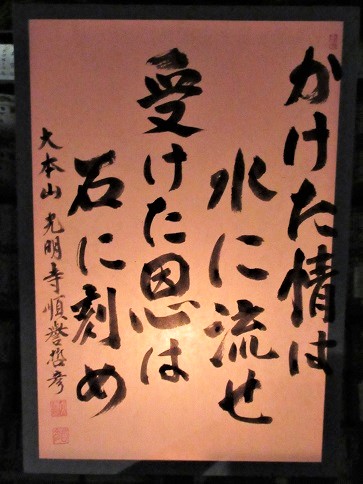 かけた情は
水に流せ
受けた恩は
石に刻め
大本山光明寺順誉哲彦